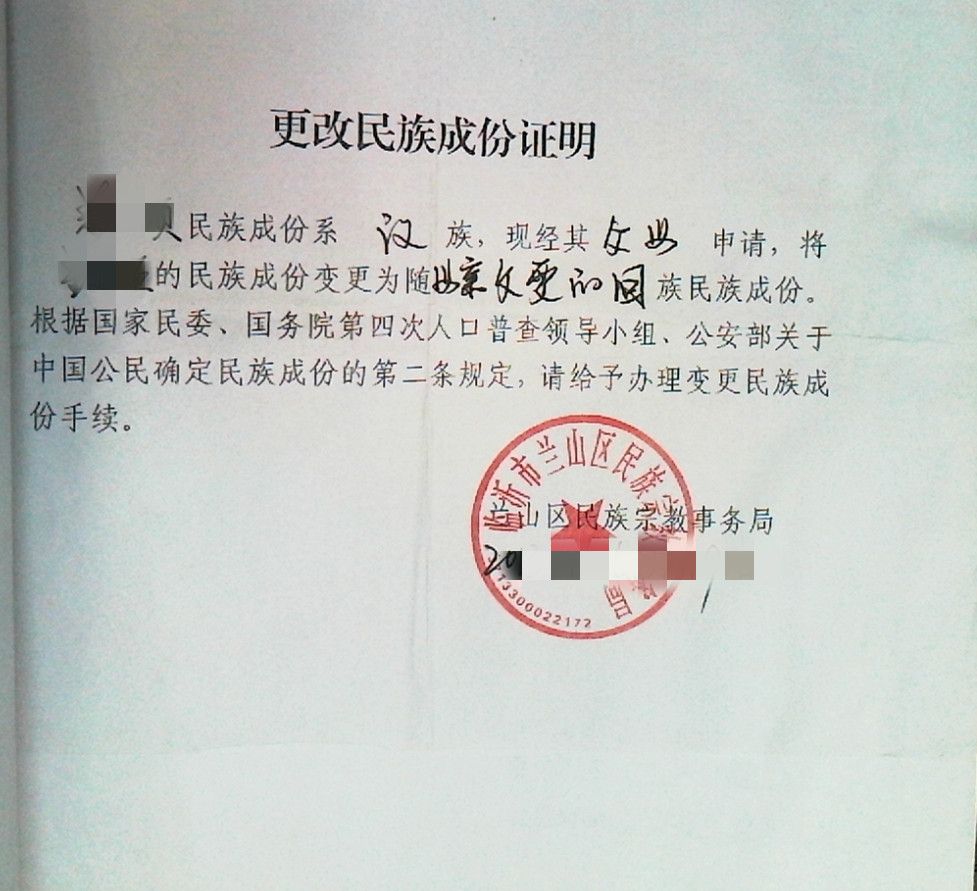 更改民族成份证明
民族成份系 汉 族，现经其 父母 申请，将
的民族成份变更为随母亲变更的回族民族成份。
根据国家民委、国务院第四次人口普查领导小组、公安部关于
中国公民确定民族成份的第二条规定，请给予办理变更民族成
份手续。
临沂市兰山区民族宗
兰山区民族宗教事务局
20
13300022172